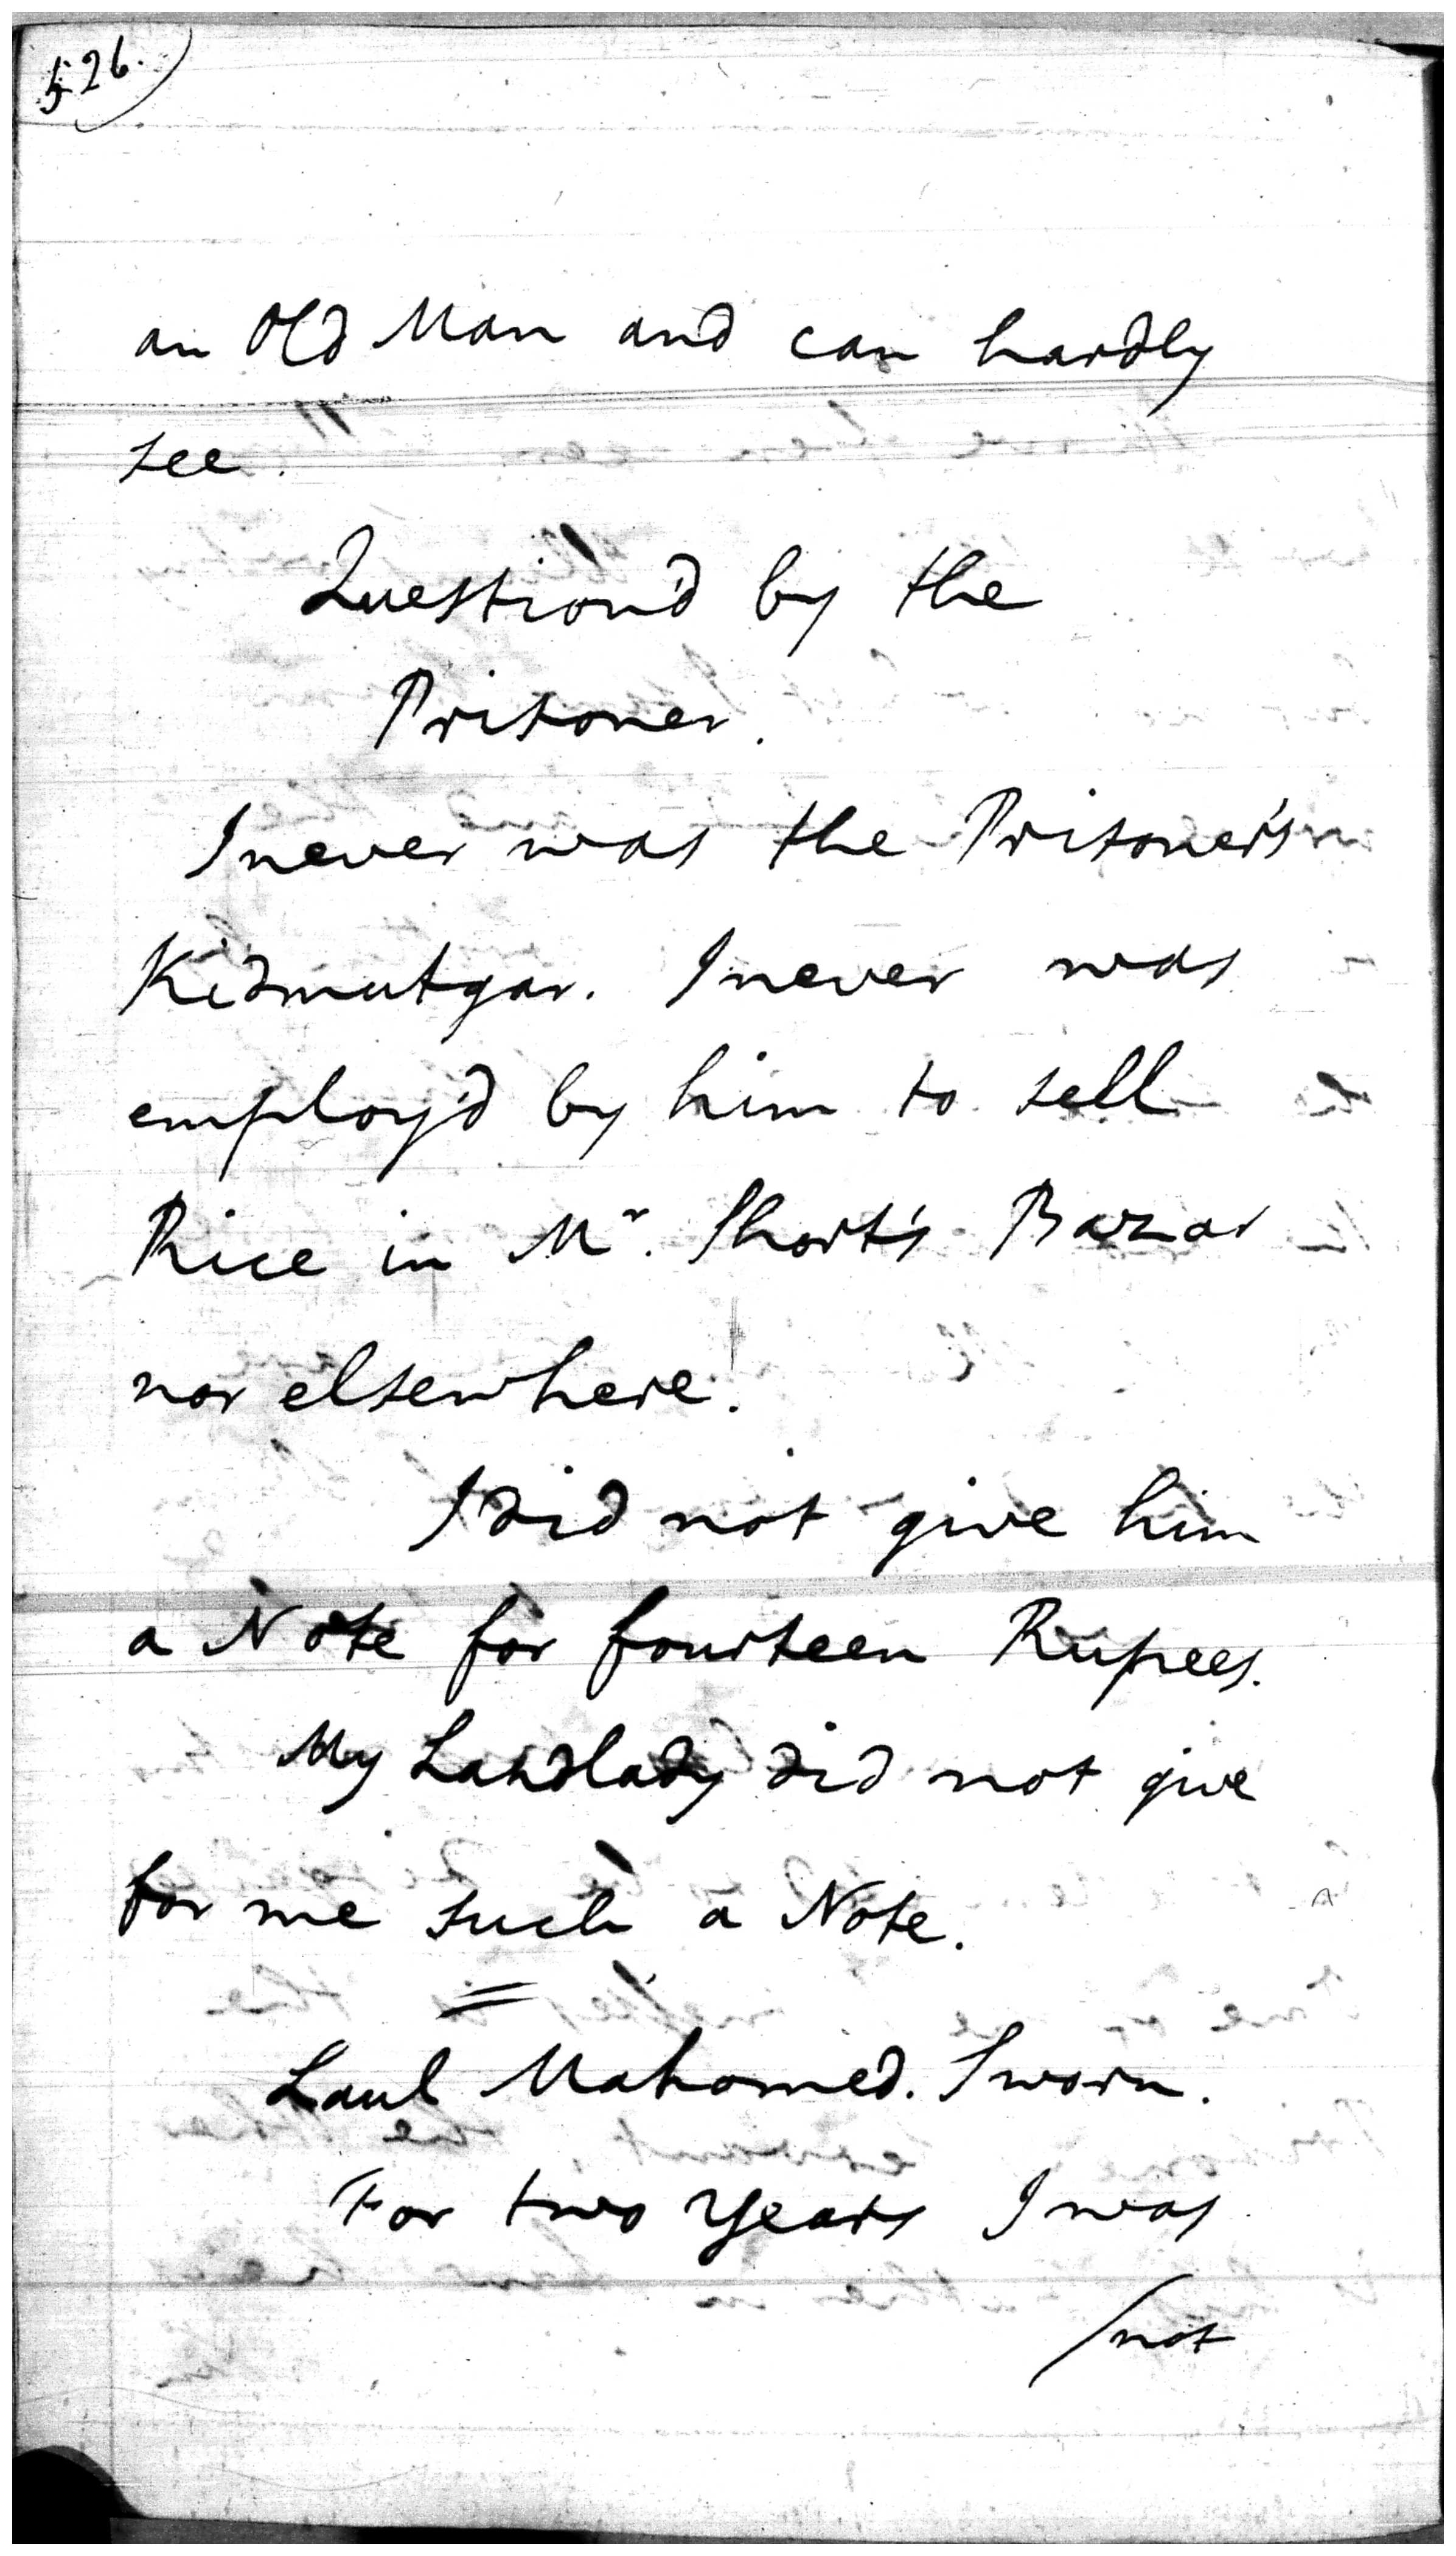 526.
an Old Man and can hardly
see.
Question'd by the
Prisoner.
I never was the Prisoner's
Kidmutgar. I never was
employ'd by him to sell
Rice in Mr. Short's Bazar
nor elsewhere.
I did not give him
a Note for fourteen Rupees.
My Landlady did not give
for me such a Note.
Laul Mahomed. Sworn.
For two Years I was
/not